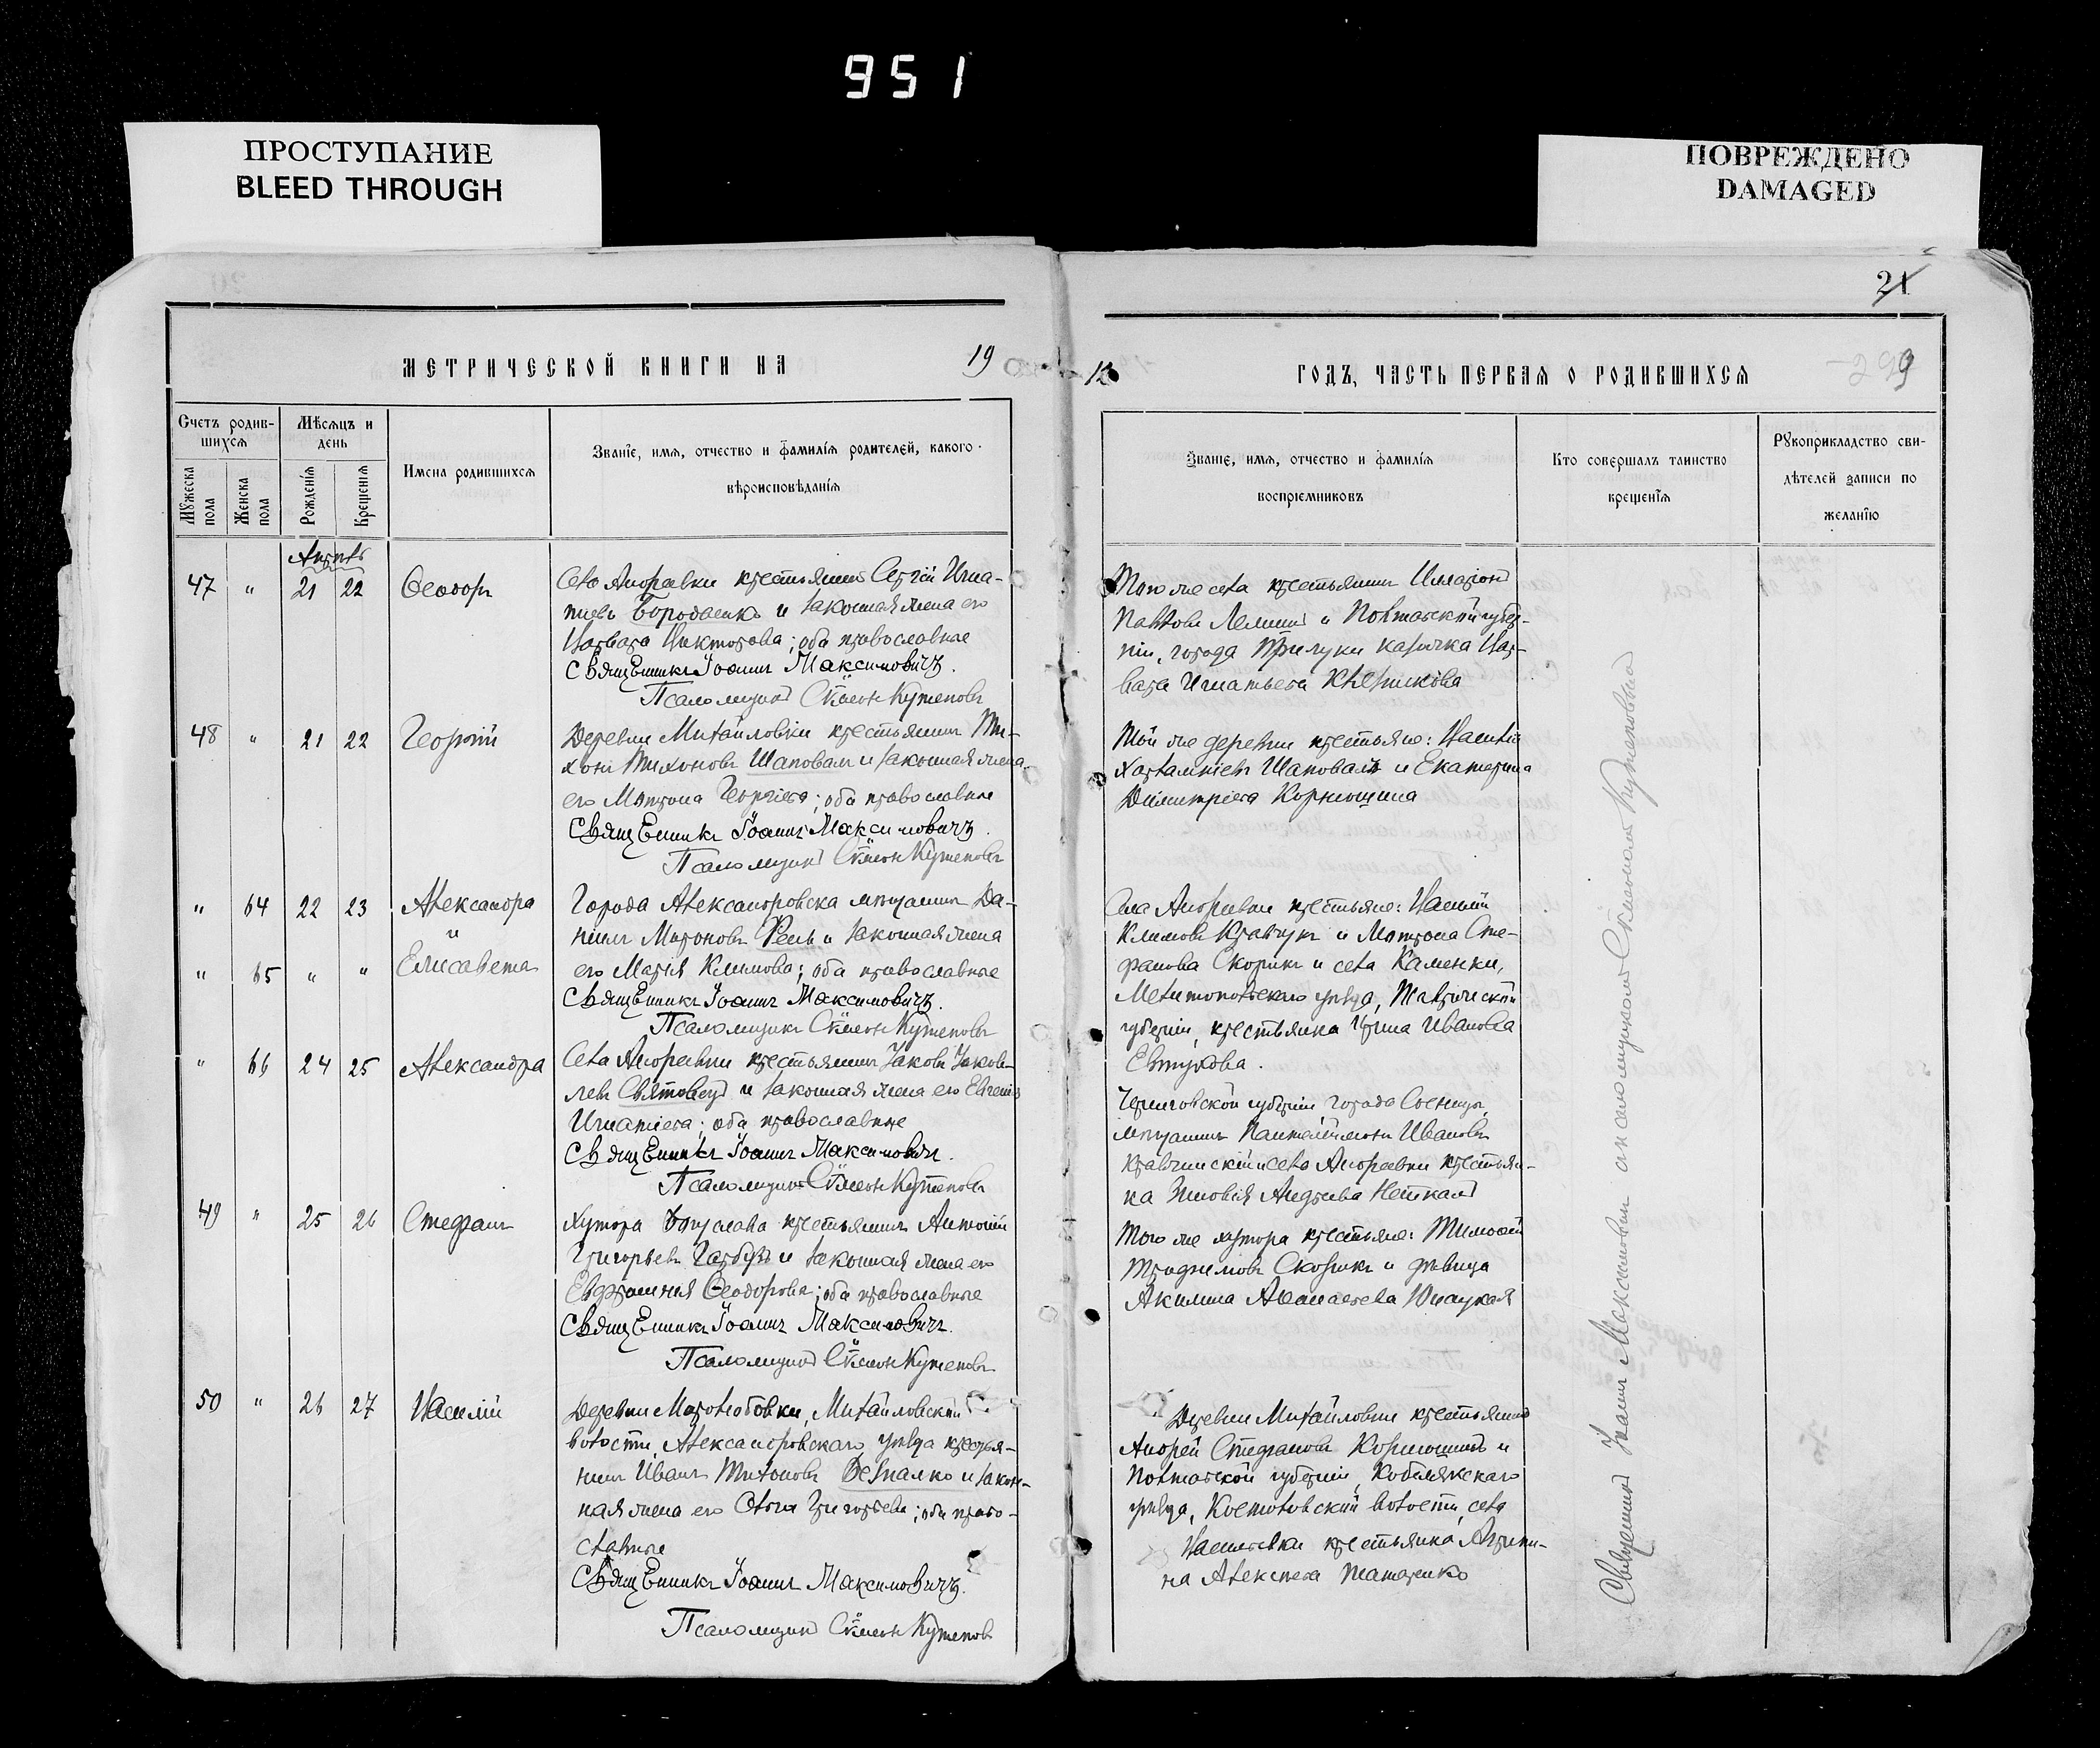 951
ПРОСТУПАНИЕ
BLEED THROUGH
ПОВРЕЖДЕНО
DAMAGED
21
МЕТРИЧЕСКОЙ КНИГИ НА 19
12 ГОДЪ, ЧАСТЬ ПЕРВАЯ О РОДИВШИХСЯ
Счетъ родив-
шихся
Мужеска пола
Женска пола
Мѣсяцъ и
день
Рожденія
Крещенія
Имена родившихся
Званіе, имя, отчество и фамилія родителей, какого
вѣроисповѣданія
Званіе, имя, отчество и фамилія
воспріемниковъ
Кто совершалъ таинство
крещенія
Рукоприкладство сви-
дѣтелей записи по
желанію
47 " 21 22 Ѳеодоръ
Села Андреевки крестьянинъ Сергій Игна-
тіевъ Бородаенко и законная жена его
Варвара Викторова; оба православные
Священникъ Іоаннъ Максимовичъ.
Псаломщикъ Сѵмеонъ Кутеповъ
Того же села крестьянинъ Иларіонъ
Павловъ и Полтавской губер-
ніи, города Прилуки казачка Вар-
вара Игнатьева
48 " 21 22 Георгій
Деревни Михайловки крестьянинъ Ти-
хонъ Тихоновъ Шаповалъ и законная жена
его Матрона Георгіева; оба православные
Священникъ Іоаннъ Максимовичъ.
Псаломщикъ Сѵмеонъ Кутеповъ
Той же деревни крестьяне: Василій
Харлампіевъ Шаповалъ и Екатерина
Димитріева Корнюшина
" 64 22 23 Александра
и
" 65 " " Елисавета
Города Александровска мѣщанинъ Да-
ніилъ Мироновъ и законная жена
его Марія Климова; оба православные
Священникъ Іоаннъ Максимовичъ.
Псаломщикъ Сѵмеонъ Кутеповъ
Села Андреевки крестьяне: Василій
Климовъ Кравчукъ и Матрона Сте-
фанова Скорикъ и села Каменки,
Мелитопольскаго уѣзда, Таврической
губерніи, крестьянка Ирина Иванова
Евтухова.
" 66 24 25 Александра
Села Андреевки крестьянинъ Іаковъ Іаков-
левъ и законная жена его Евгенія
Игнатіева; оба православные
Священникъ Іоаннъ Максимовичъ.
Псаломщикъ Сѵмеонъ Кутеповъ
Черниговской губерніи, города Сосницы,
мѣщанинъ Пантелеимонъ Ивановъ
Кравчинскій и села Андреевки крестьян-
ка Зиновія Андреева
49 " 25 26 Стефанъ
Хутора Богуслава крестьянинъ Антоній
Григорьевъ Гарбузъ и законная жена его
Евфросинія Ѳеодорова; оба православные
Священникъ Іоаннъ Максимовичъ.
Псаломщикъ Сѵмеонъ Кутеповъ
Того же хутора крестьяне: Тимоѳей
Трофимовъ Скорикъ и дѣвица
Акилина Аѳанасьева
50 " 26 27 Василій
Деревни Миролюбовки, Михайловской
волости, Александровскаго уѣзда крестья-
нинъ Иванъ Тихоновъ Безпалко и закон-
ная жена его Григорьева; оба право-
славные
Священникъ Іоаннъ Максимовичъ.
Псаломщикъ Сѵмеонъ Кутеповъ
Деревни Михайловки крестьянинъ
Андрей Стефановъ Корнюшинъ и
Полтавской губерніи, Кобелякскаго
уѣзда, волости, села
Василевки крестьянка Агрипи-
на Алексѣева Татаренко
Священникъ Іоаннъ Максимовичъ съ псаломщикомъ Сѵмеономъ Кутеповымъ